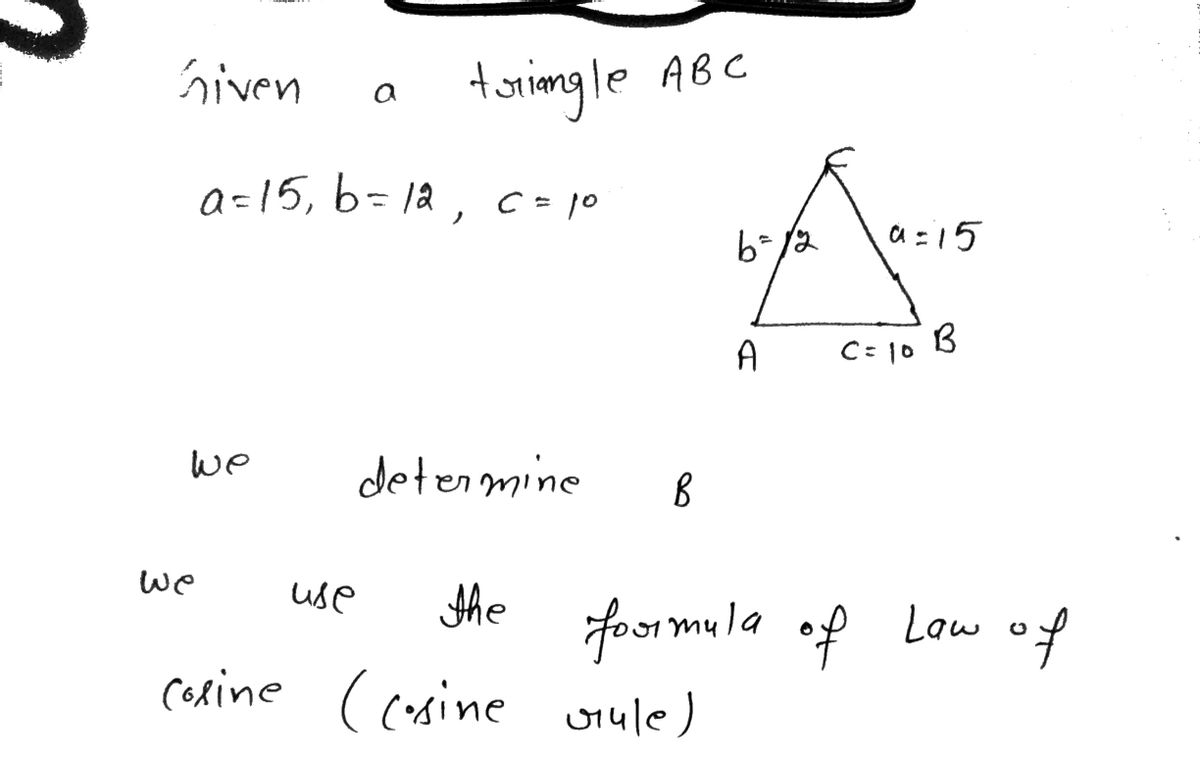 Given a triangle ABC
a=15, b=12, c=10
C
b=12
a=15
A
C=10
B
we determine B
we use the formula of Law of
cosine (cosine rule)